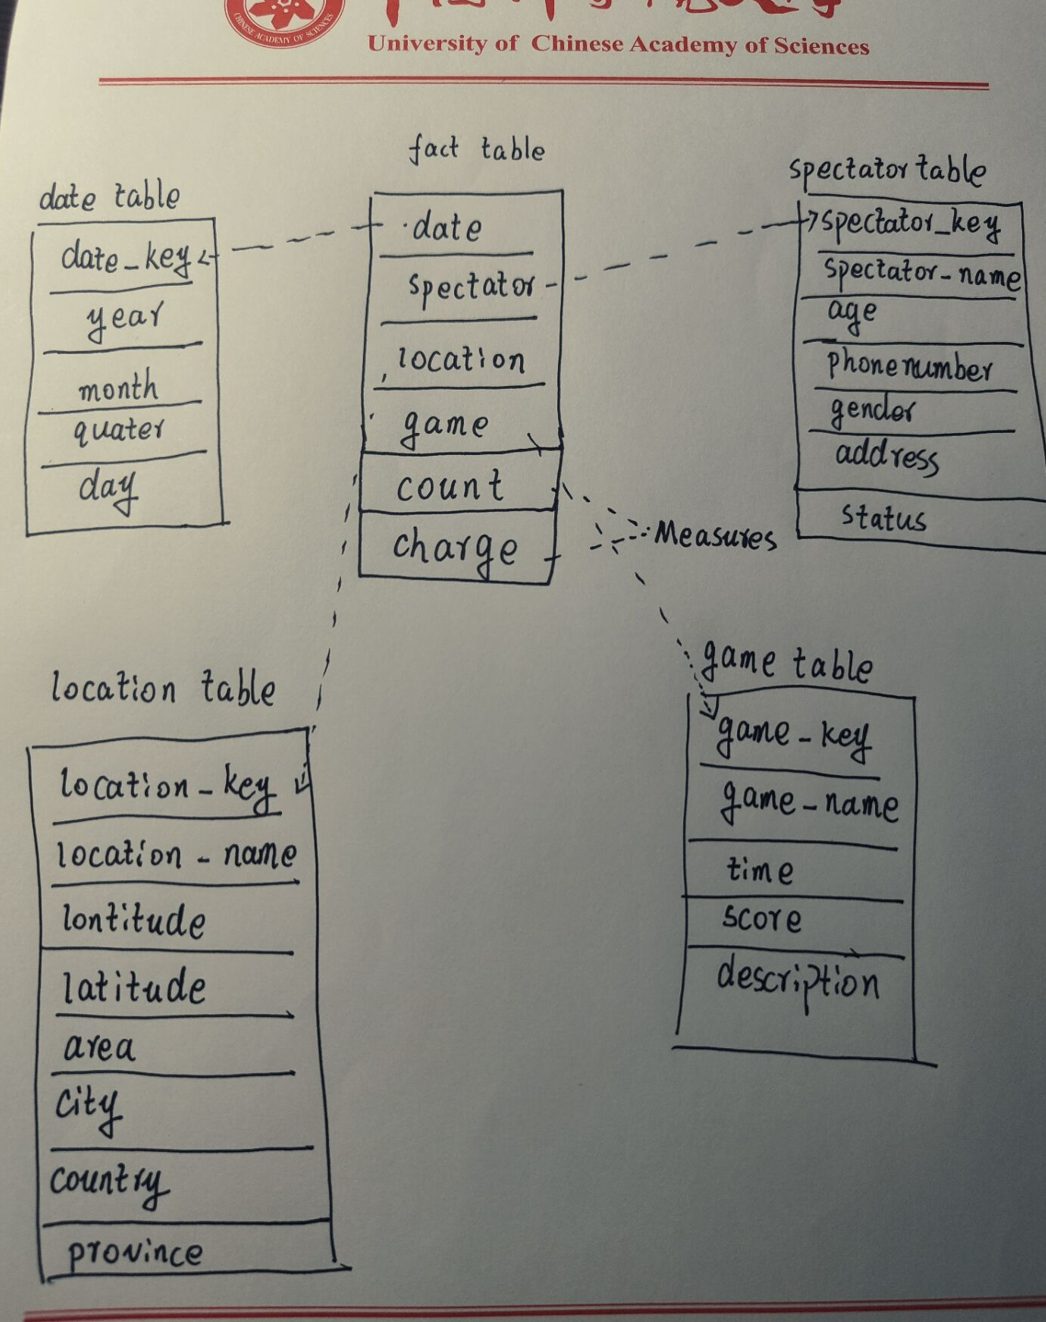 CHINESE ACADEMY OF SCIENCES
University of Chinese Academy of Sciences
fact table
date
spectator
location
game
count
charge
Measures
date table
date_key
year
month
quater
day
spectator table
spectator_key
spectator-name
age
phone number
gender
address
status
location table
location-key
location-name
lontitude
latitude
area
city
country
province
game table
game-key
game-name
time
score
description